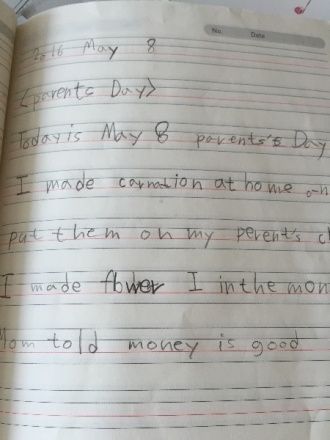 No. Date
2016 May 8
<parents Day>
Today is May 8 parents's Day
I made carnation at home
put them on my perent's
I made flower I in the
Mom told money is good